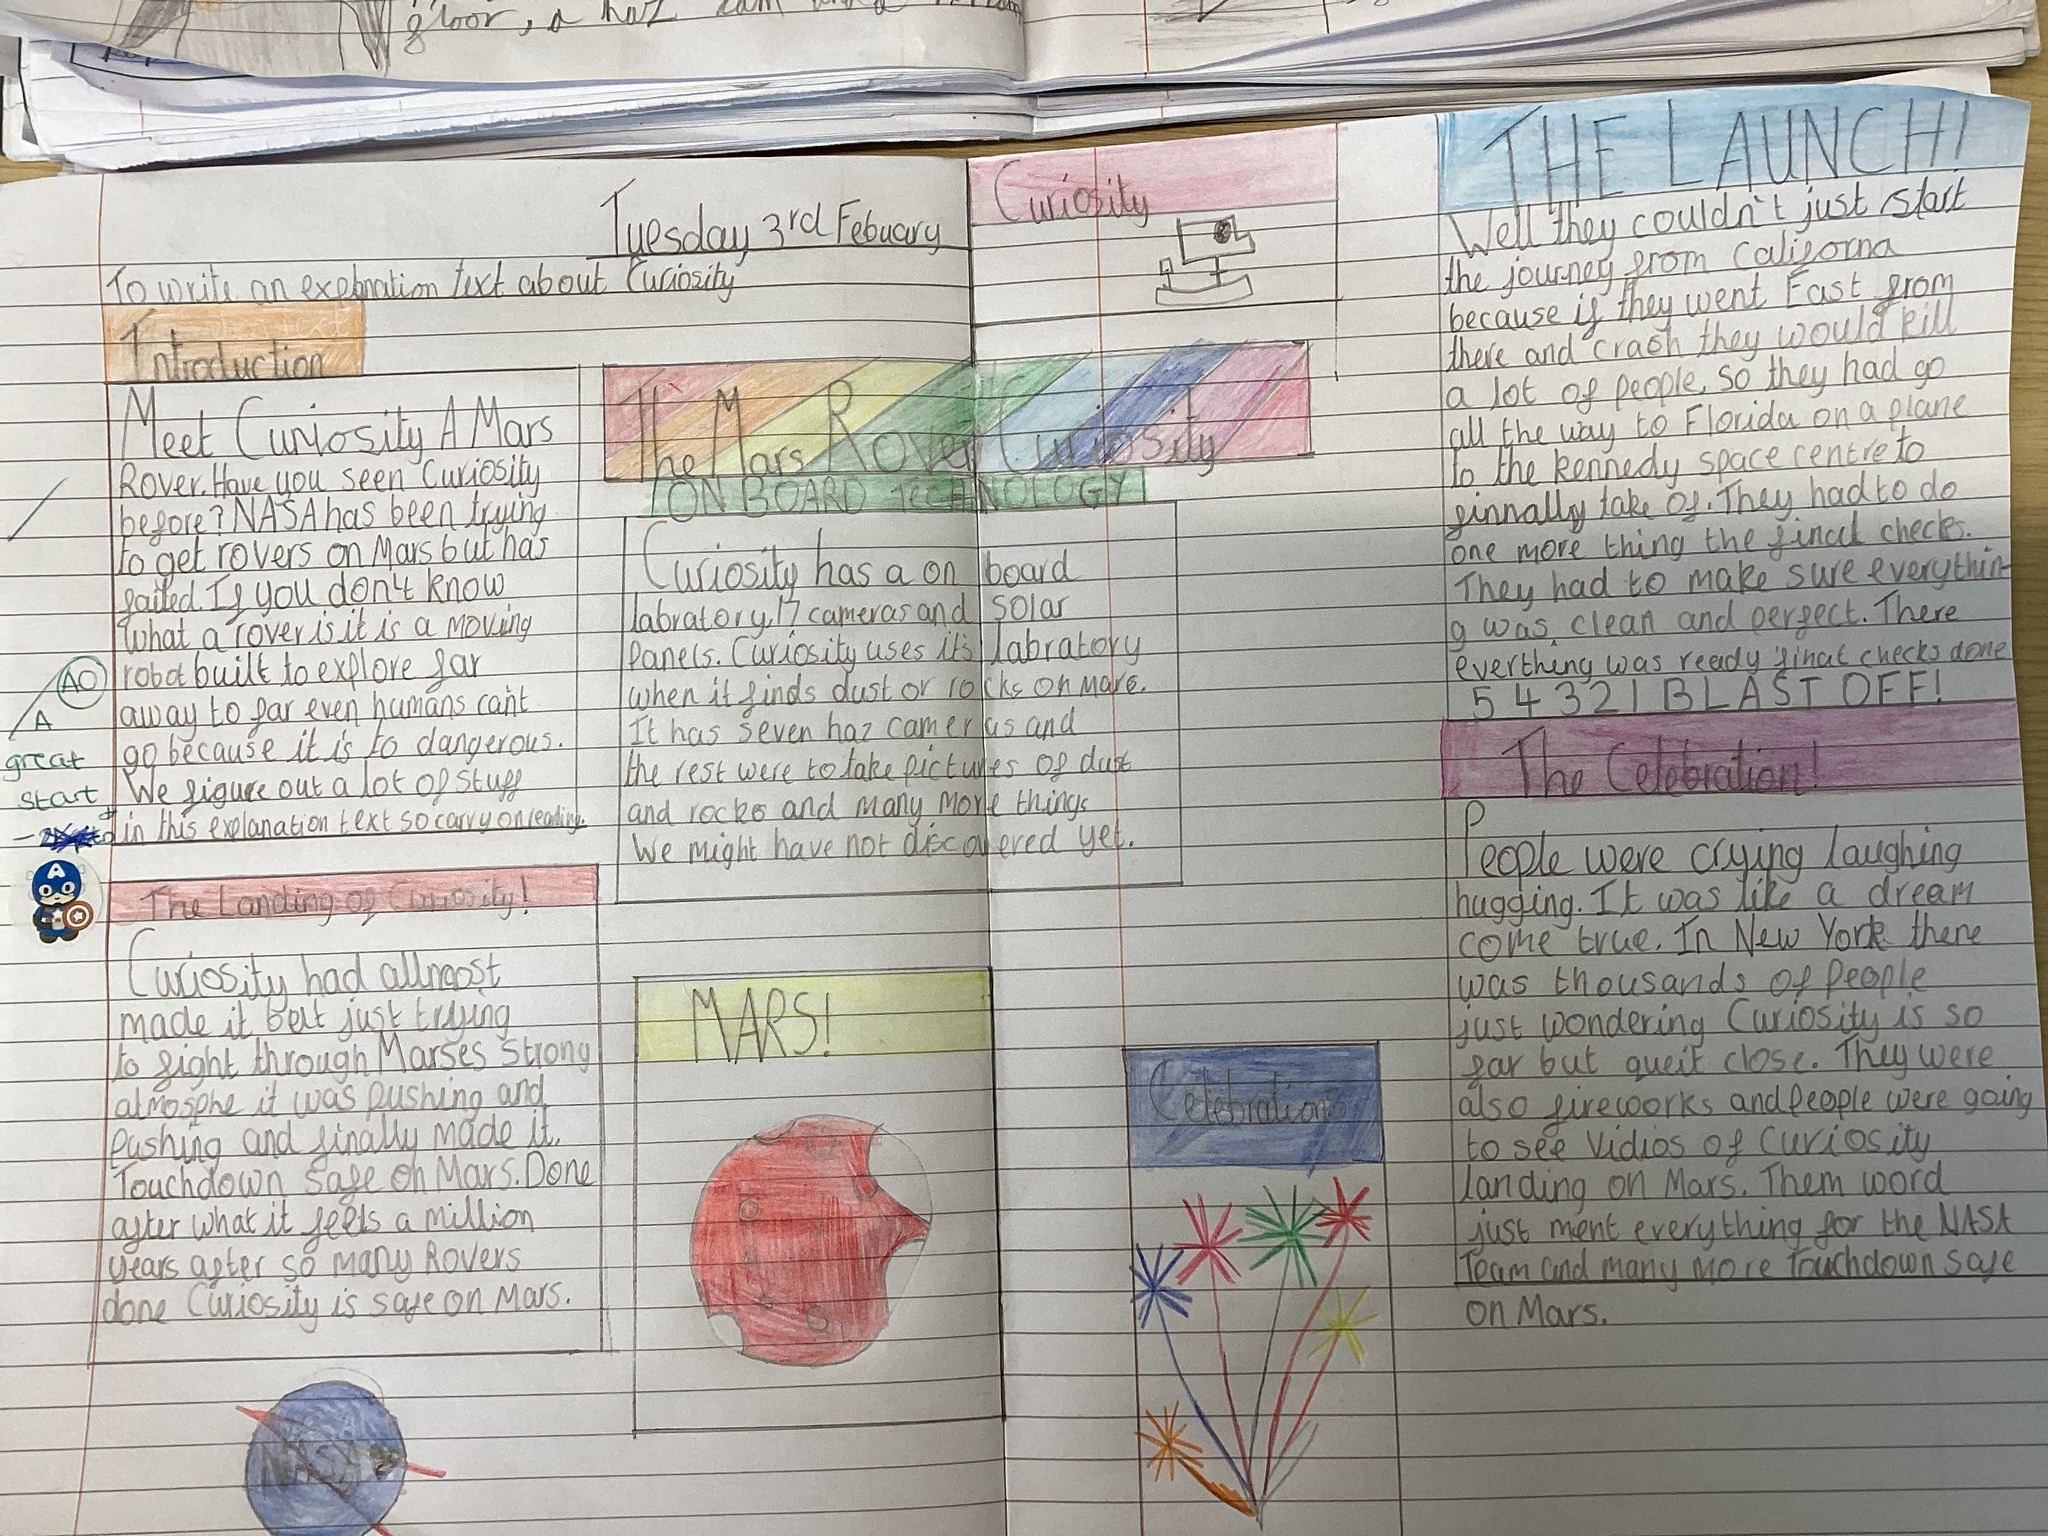 floor, a haz cam and a
Tuesday 3rd Febuary
To write an explanation text about Curiosity
Introduction
Meet Curiosity A Mars
Rover. Have you seen Curiosity
before? NASA has been trying
to get rovers on Mars but has
failed. If you don't know
what a rover is it is a moving
robot built to explore far
away to far even humans can't
go because it is to dangerous.
We figure out a lot of stuff
in this explanation text so carry on reading.
AO
A
great
start
The Landing of Curiosity!
Curiosity had allmost
made it but just trying
to fight through Marses strong
atmosphe it was pushing and
pushing and finally made it.
Touchdown safe on Mars. Done
after what it feels a million
years after so many Rovers
done Curiosity is safe on Mars.
NASA
The Mars Rover Curiosity
ON BOARD TECHNOLOGY
Curiosity has a on board
labratory, 17 cameras and solar
Panels. Curiosity uses it's labratory
when it finds dust or rocks on mars.
It has seven haz cameras and
the rest were to take pictures of dust
and rocks and many more things
we might have not discovered yet.
MARS!
Curiosity
Celebration
THE LAUNCH!
Well they couldn't just start
the journey from Californa
because if they went East from
there and crash they would kill
a lot of people, so they had go
all the way to Florida on a plane
to the kennedy space centre to
finnally take of. They had to do
one more thing the final checks.
They had to make sure everythin
g was clean and perfect. There
everthing was ready final checks done
5 4 3 2 1 BLAST OFF!
The Celebration!
People were crying laughing
hugging. It was like a dream
come true. In New York there
was thousands of people
just wondering Curiosity is so
far but queit close. They were
also fireworks and people were going
to see Vidios of Curiosity
landing on Mars. Them word
just ment everything for the NASA
Team and many more Touchdown safe
on Mars.